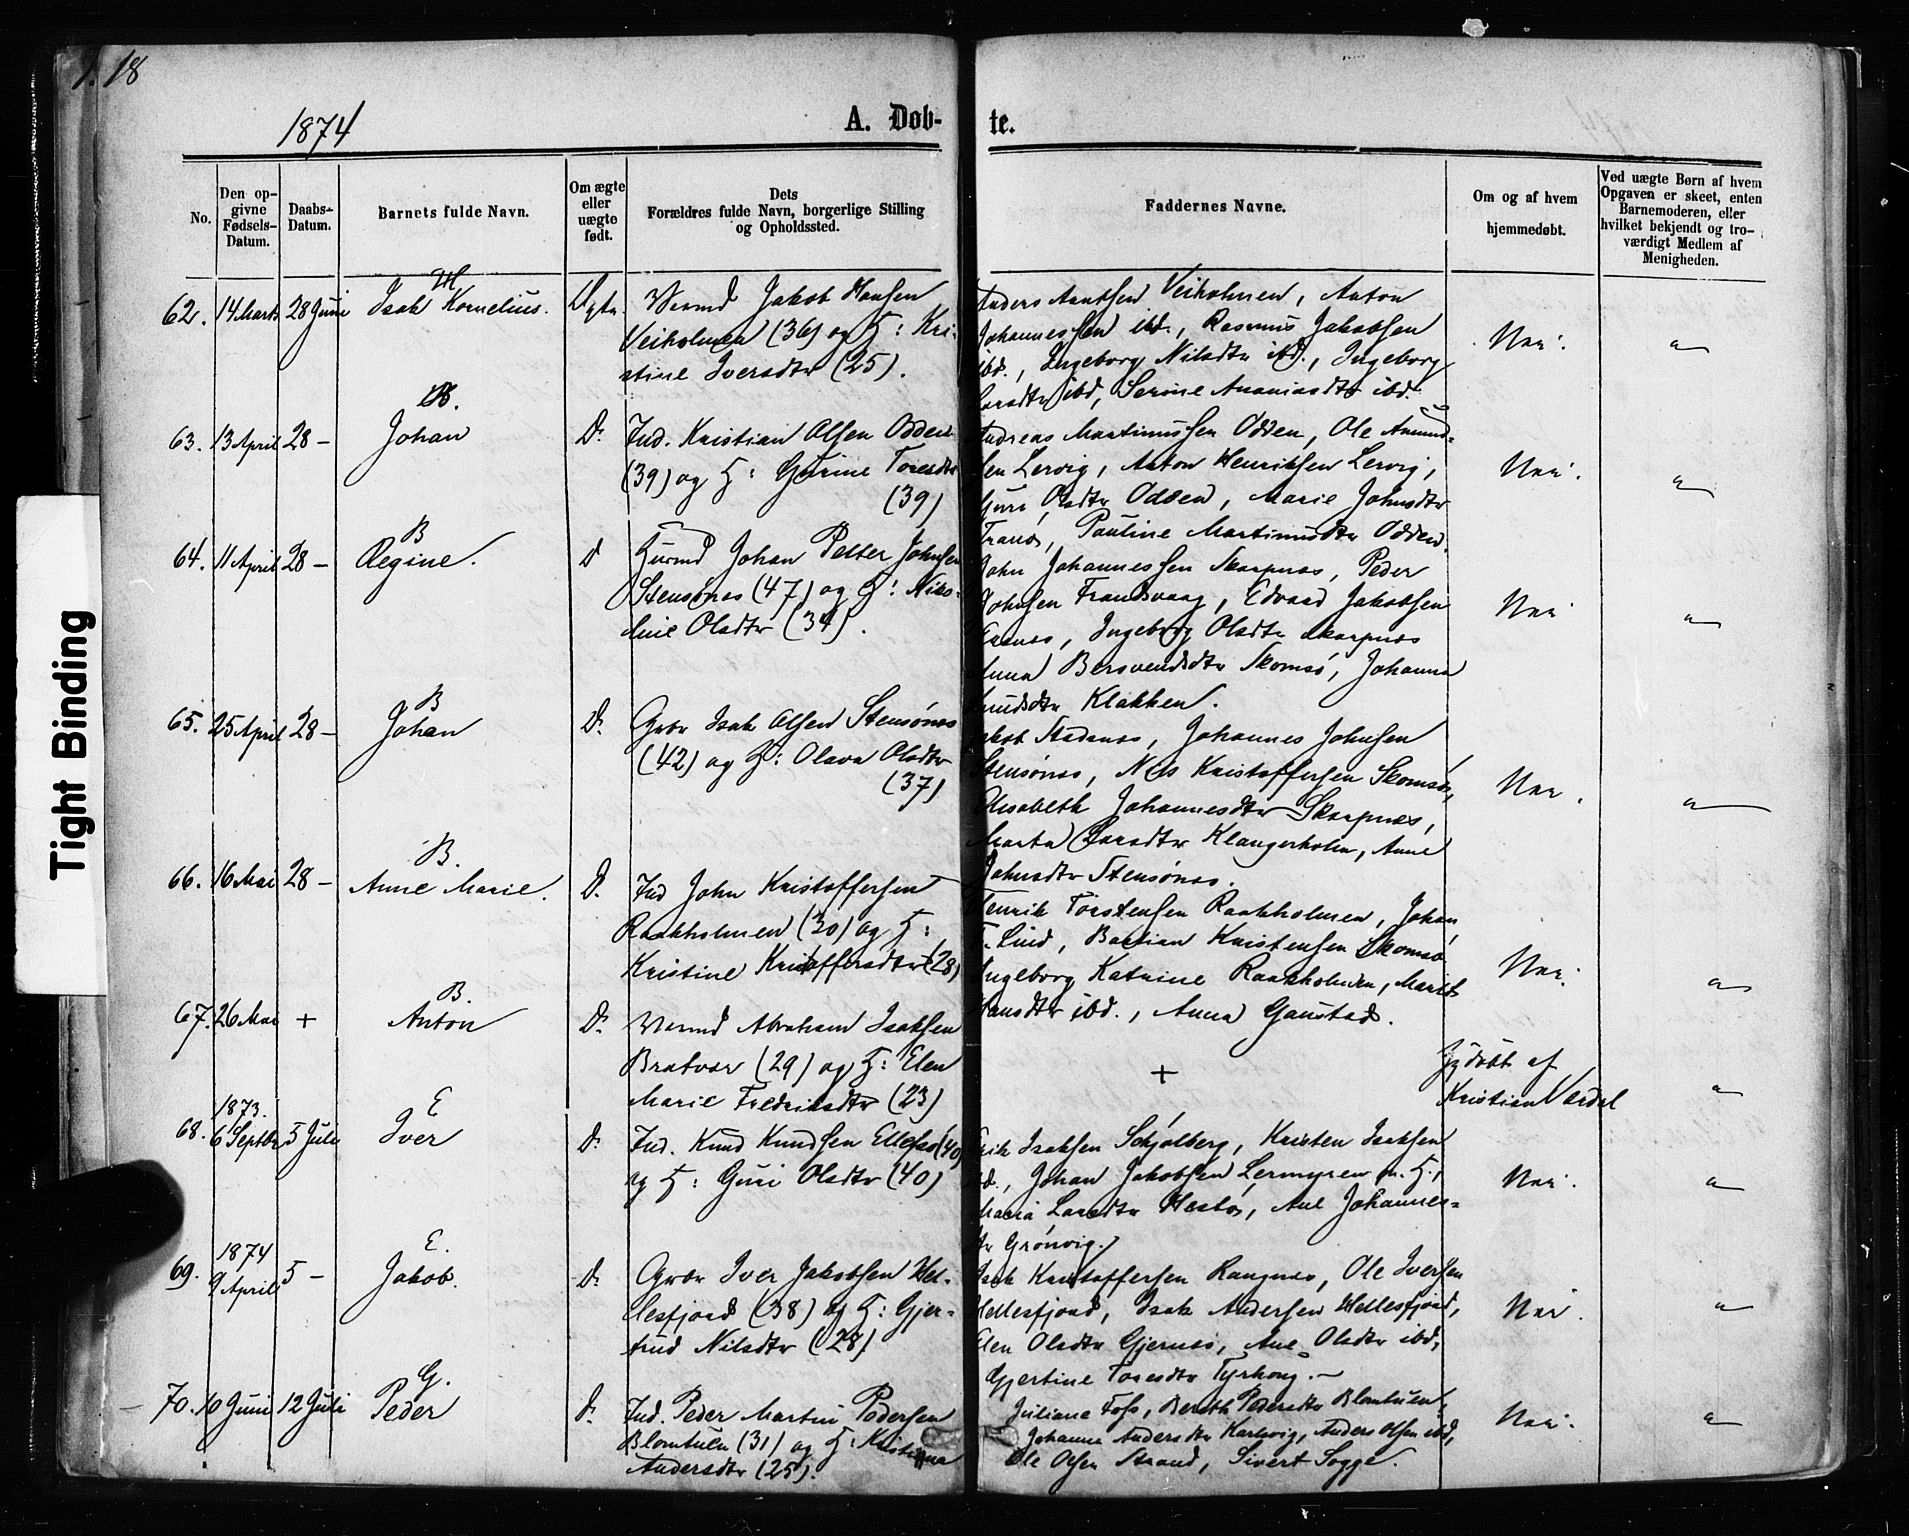 1. 18
1874
A. Døb-
te.
No.
Den op-
givne
Fødsels-
Datum.
Daabs-
Datum.
Barnets fulde Navn.
Om ægte
eller
uægte
født.
Dets
Forældres fulde Navn, borgerlige Stilling
og Opholdssted.
Faddernes Navne.
Om og af hvem
hjemmedøbt.
Ved uægte Børn af hvem
Opgaven er skeet, enten
Barnemoderen, eller
hvilket bekjendt og tro-
værdigt Medlem af
Menigheden.
62. 14 Marts 28 Juni Isak Kornelius.
Jakob Hansen
Veiholmen (36) og H: Kri-
stine Iversdtr (25).
Veiholmen, Anton
Johannessen ibd., Rasmus Jakobsen
ibd., Ingeborg Nilsdtr ibd., Ingeborg
Larsdtr ibd, Serine Ananiasdtr ibd.
Nei.
63. 13 April 28 – Johan D.
Ind. Kristian Olsen Odden
(39) og H: Gurine Toresdtr
(39)
Andreas Martinussen Odden, Ole Amund-
sen Lervig, Anton Henriksen Lervig,
Guri Olsdtr Odden, Marie Johnsdtr
Tranes, Pauline Martinusdtr Odden.
Nei.
64. 11 April 28 – B
Regine. D
Johan Petter Johnsen
Stensønes (47) og H: Niko-
line Olsdtr (34).
John Johannessen Skarpnes, Peder
Johnsen Frandsvaag, Edvard Jakobsen
Ingeborg Olsdtr Skarpnes
Anna Bersvendsdtr Skomsø, Johanna
Knudsdtr Klakken.
Nei
65. 25 April 28 – B
Johan D.
Isak Olsen Stensønes
(42) og H: Olava Olsdtr
(37)
Jakob Stadsnes, Johannes Johnsen
Stensønes, Nils Kristoffersen Skomsø,
Elisabeth Johannesdtr Skarpnes,
Marta Larsdtr Klangerholm, Anne
Johnsdtr Stensønes.
Nei.
66. 16 Mai 28 – B.
Anne Marie. D.
Ind John Kristoffersen
Raakholmen (30) og H:
Kristine Kristoffersdtr (28)
Henrik Torstensen Raakholmen, Johan
F. Lind, Bastian Kristensen Skomsø
Ingeborg Katrine Raakholmen, Marit
Hansdtr ibd., Anna Gaustad.
Nei.
67. 26 Mai + B.
Anton D.
Abraham Isaksen
Bratvær (29) og H: Elen
Marie Fredriksdtr (23)
+
Hjdøbt af
Kristian Værdal
68. 1873.
6 Septbr 5 Juli E
Iver D.
Ind. Knud Knudsen Ellefsø (40)
og H: Guri Olsdtr (40)
Erik Isaksen Schjølberg, Kristen Isaksen
ibd., Johan Jakobsen Lermyren m. H,
Maria Larsdtr Hestø, Ane Johannes-
dtr Grønvig.
Nei.
69. 1874
9 April 5 – E.
Jakob. D.
Iver Jakobsen Hel-
lesfjord (38) og H: Gjer-
trud Nilsdtr (28)
Isak Kristoffersen Rangnes, Ole Iversen
Hellesfjord, Isak Andersen Hellesfjord,
Elen Olsdtr Gjernes, Ane Olsdtr ibd,
Gjertine Toresdtr Tyrhoug. –
Nei.
– 70. 10 Juni 12 Juli G.
Peder D.
Ind. Peder Martin Pedersen
Blomtuen (31) og H: Kristianna
Andersdtr (25).
Juliane Foss, Bereth Pedersdtr Blomtuen,
Johanna Andersdtr Karlsvig, Anders Olsen ibd,
Ole Olsen Strand, Sivert Sogge.
Nei.
Tight Binding